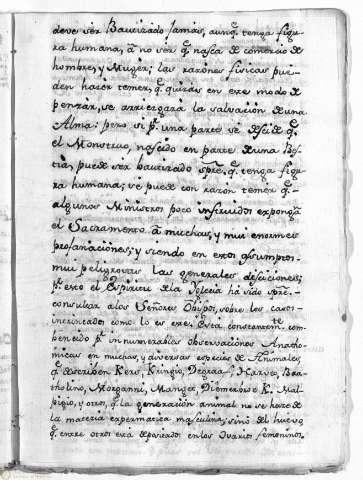 deve ser Bautizado jamás, aunq. tenga figu-
ra humana, à no ser q. nasca de comercio de
hombre, y Muger; las razones fisicas pue-
den hacer temer, q. quizás en ese modo de
pensar, se arriesgara la salvacion de una
Alma: pero si p. una parte se defiende q.
el Monstruo, nacido en parte de una Bes-
tia, puede ser bautizado spre. q. tenga figu-
ra humana; se puede con razón temer q.
algunos Ministros poco instruidos expongan
el Sacramento à muchas, y mui enormes
profanaciones; y siendo en estos asumptos
mui peligrosas las generales deciciones,
pr. eso el Espiritu de la Yglecia há sido spre.
consultar a los Señores Obispos, sobre los casos
como lo es ese. Esta
p. innumerables observaciones Anatho-
micas en muchas, y diversas especies de Animales,
q. describen Kerc, Graaf, Harveo, Bar-
tholino, Morganni, Manget, Diemerbroek, Mal-
pigio, y otros, q. la generación animal no se hace de
la materia espermatica masculina, sino del huevo
q. entre otros está depositado en los ovarios femeninos.